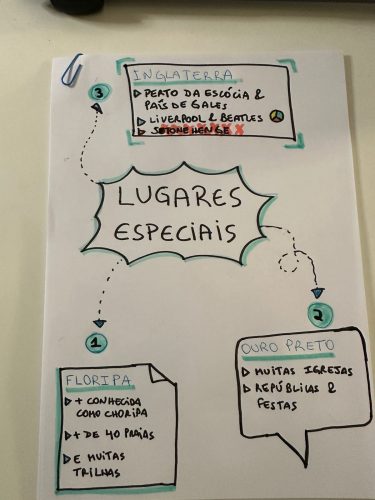 3
INGLATERRA
PERTO DA ESCÓCIA &
PAÍS DE GALES
LIVERPOOL & BEATLES
SETONEHENGE
LUGARES
ESPECIAIS
1
FLORIPA
+ CONHECIDA
COMO CHORIPA
+ DE 40 PRAIAS
E MUITAS
TRILHAS
2
OURO PRETO
MUITAS IGREJAS
REPÚBLICAS &
FESTAS